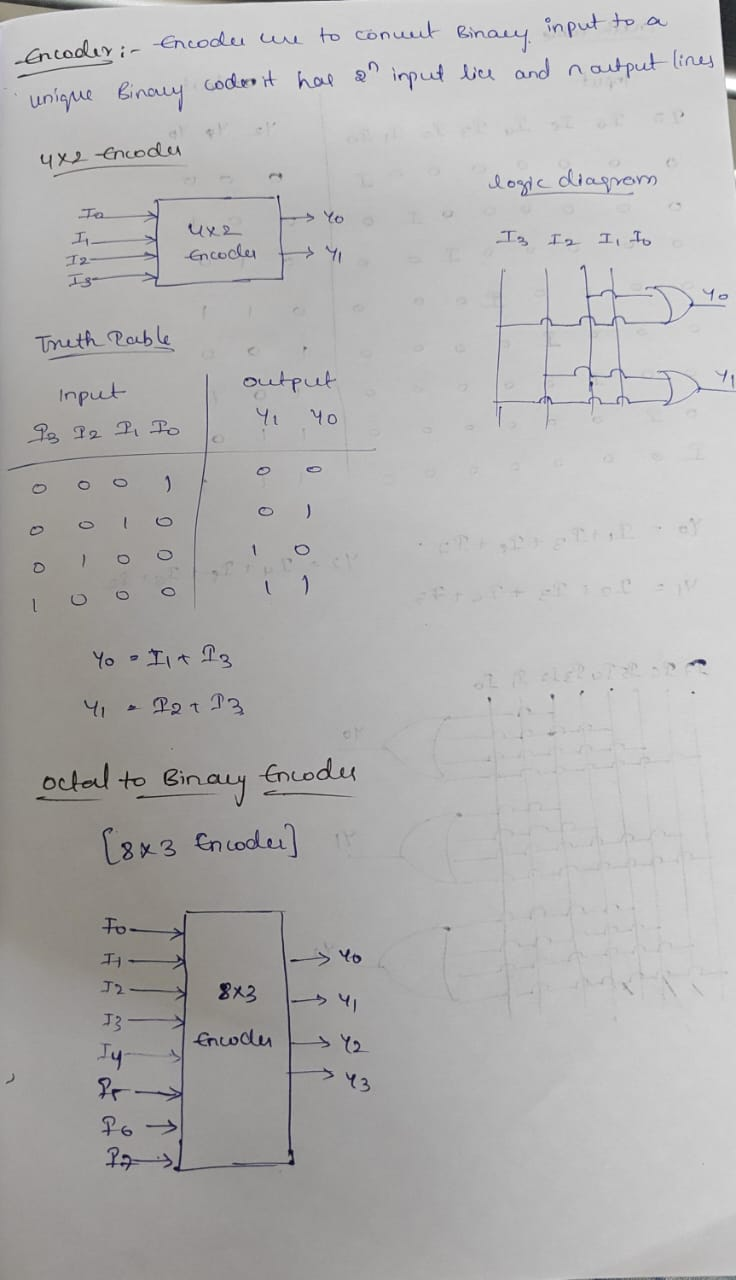 Encoder :- Encoder use to convert Binary input to a
unique Binary coder it has 2ⁿ input line and n output lines
4x2 Encoder
I0
I1
I2
I3
4x2
Encoder
Y0
Y1
logic diagram
I3 I2 I1 I0
Y0
Y1
Truth Table
Input output
I3 I2 I1 I0 Y1 Y0
0 0 0 1 0 0
0 0 1 0 0 1
0 1 0 0 1 0
1 0 0 0 1 1
Y0 = I1 + I3
Y1 = I2 + I3
Octal to Binary Encoder
[8x3 Encoder]
I0
I1
I2
I3
I4
I5
I6
I7
8x3
Encoder
Y0
Y1
Y2
Y3